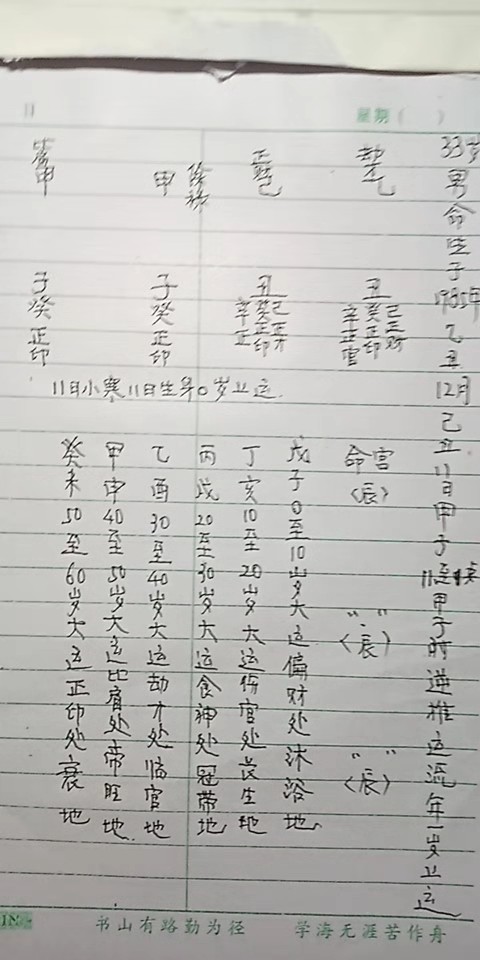 星期（ ）
33岁男命生于1985年乙丑12月己丑11日甲子11至1点甲子时逆推运流年一岁上运
劫才乙
正财己
甲
甲
丑
己正财
癸正印
辛正官
丑
己正才
癸正印
辛正
子癸正印
子癸正印
11日小寒11日生年0岁上运.
命宫
〈辰〉
〃〃
〈辰〉
〃〃
〈辰〉
戊子0至10岁大运偏财处沐浴地
丁亥10至20岁大运伤官处长生地
丙戌20至30岁大运食神处冠带地
乙酉30至40岁大运劫才处临官地
甲申40至50岁大运比肩处帝旺地.
癸未50至60岁大运正印处衰地
书山有路勤为径 学海无涯苦作舟